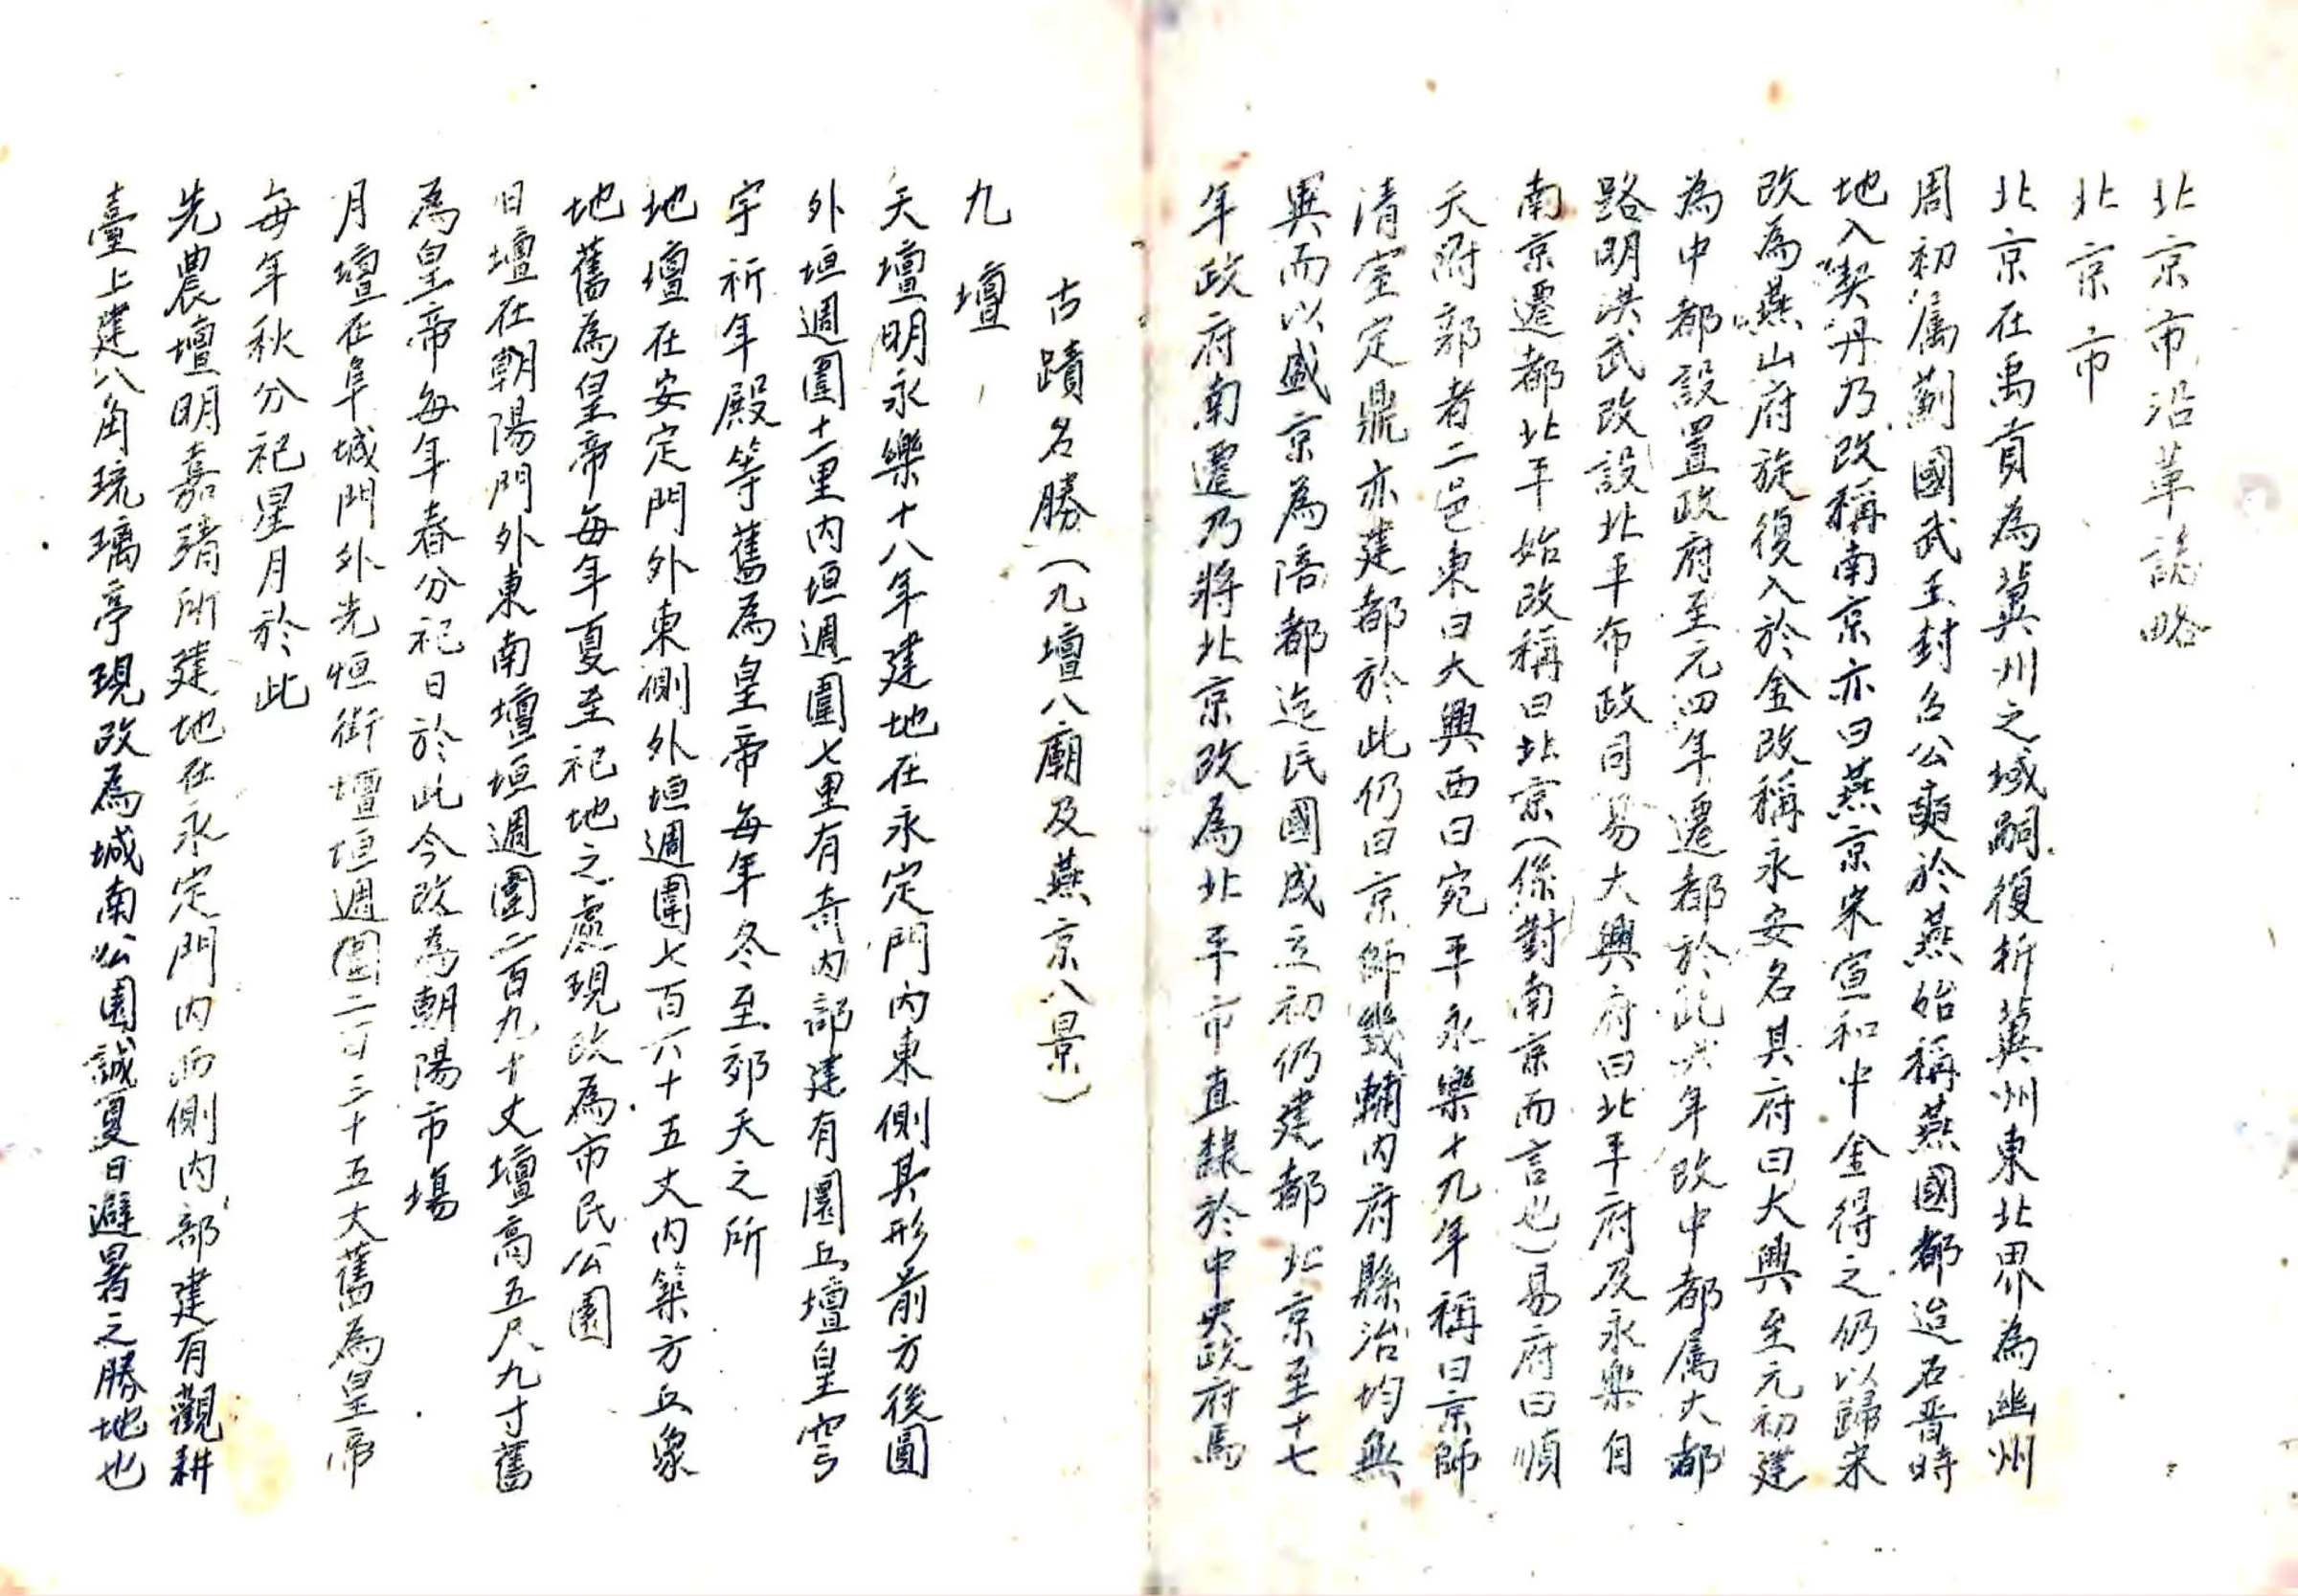 北京市沿革誌略
北京市
北京在禹貢為冀州之域嗣復折冀州東北界為幽州
周初属薊國武王封召公奭於燕始稱燕國都迨石晋時
地入契丹乃改稱南京亦曰燕京宋宣和中金得之仍以歸宋
改為燕山府旋復入於金改稱永安名其府曰大興至元初建
為中都設置政府至元四年遷都於此六年改中都属大都
路明洪武改設北平布政司易大興府曰北平府及永樂自
南京遷都北平始改稱曰北京(係對南京而言也)易府曰順
天附郭者二邑東曰大興西曰宛平永樂十九年稱曰京師
清室定鼎亦建都於此仍曰京師畿輔内府縣治均無
異而以盛京為陪都迨民國成立初仍建都北京至十七
年政府南遷乃將北京改為北平市直隸於中央政府焉
古蹟名勝(九壇八廟及燕京八景)
九壇
天壇明永樂十八年建地在永定門内東側其形前方後圓
外垣週圍十二里内垣週圍七里有奇内部建有圜丘壇皇穹
宇祈年殿等舊為皇帝每年冬至郊天之所
地壇在安定門外東側外垣週圍七百六十五丈内築方丘象
地舊為皇帝每年夏至祀地之處現改為市民公園
日壇在朝陽門外東南壇垣週圍二百九十丈壇高五尺九寸舊
為皇帝每年春分祀日於此今改為朝陽市場
月壇在阜城門外光恒街壇垣週圍二百三十五丈舊為皇帝
每年秋分祀星月於此
先農壇明嘉靖所建地在永定門内西側内部建有觀耕
臺上建八角琉璃亭現改為城南公園誠夏日避暑之勝地也